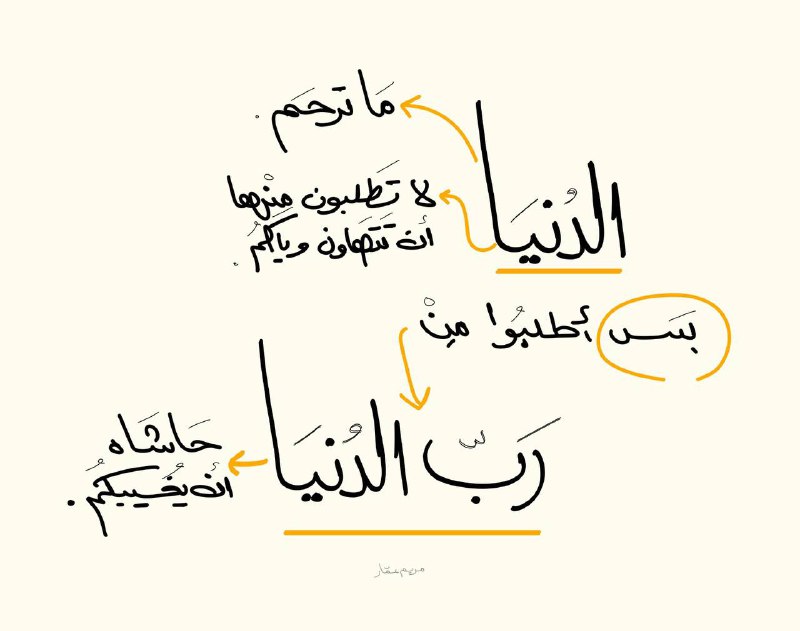 الدُنيَا
مَا ترحَم.
لا تَطلبون مِنْها
أن تَتَهاون وياكُم.
بَسَ أطلبُوا مِنْ
رَبّ الدُنيَا
حَاشَاه
أن يُخَيبكُم.
مريم عقار